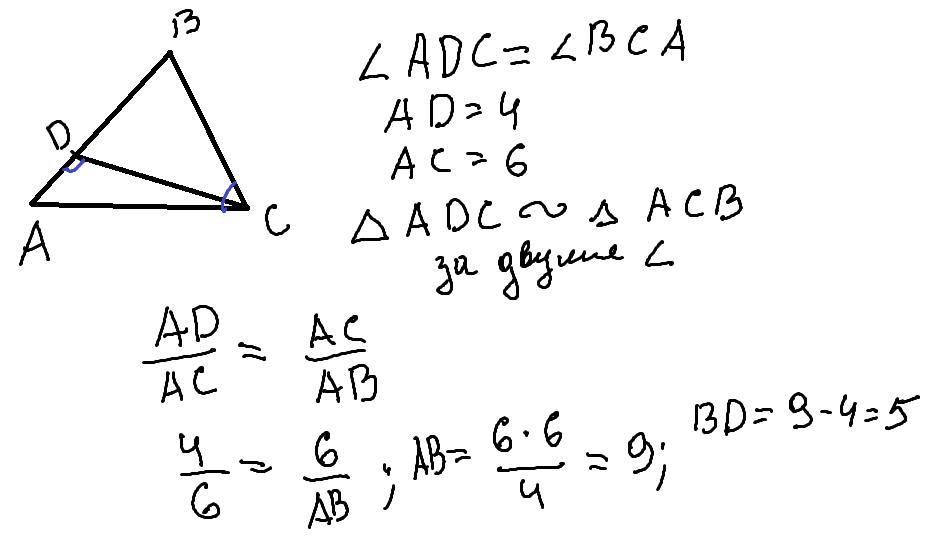 B
D
A
C
∠ADC = ∠BCA
AD = 4
AC = 6
△ADC ~ △ACB
за двума ∠
AD/AC = AC/AB
4/6 = 6/AB ; AB = 6·6/4 = 9; BD = 9-4=5